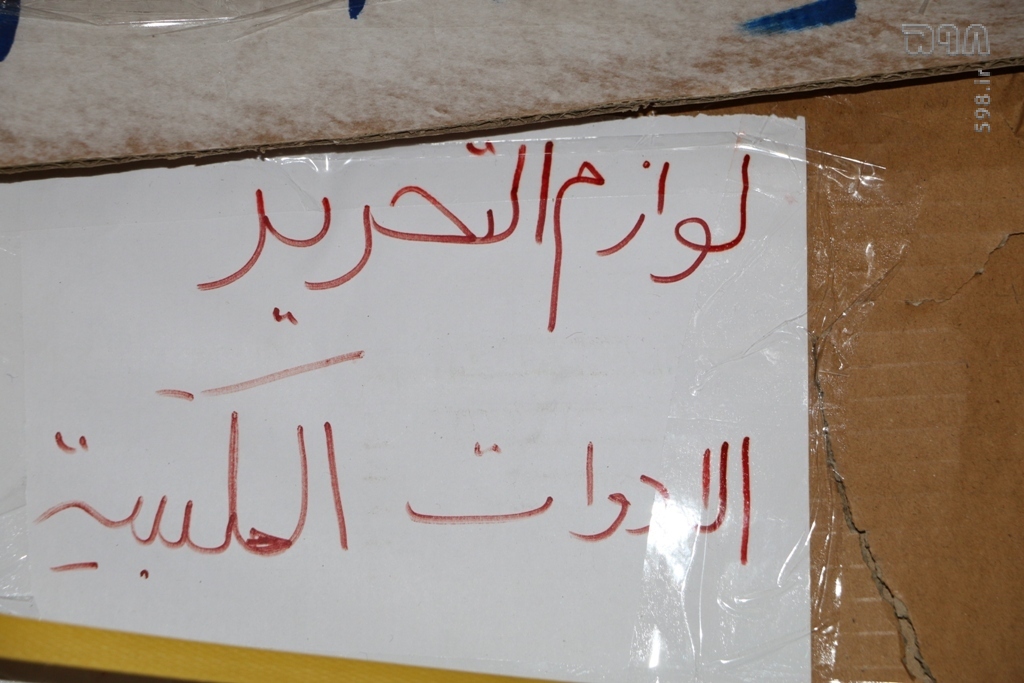 ۵۹۸
598.ir
لوازم التحرير
الادوات المكتبية